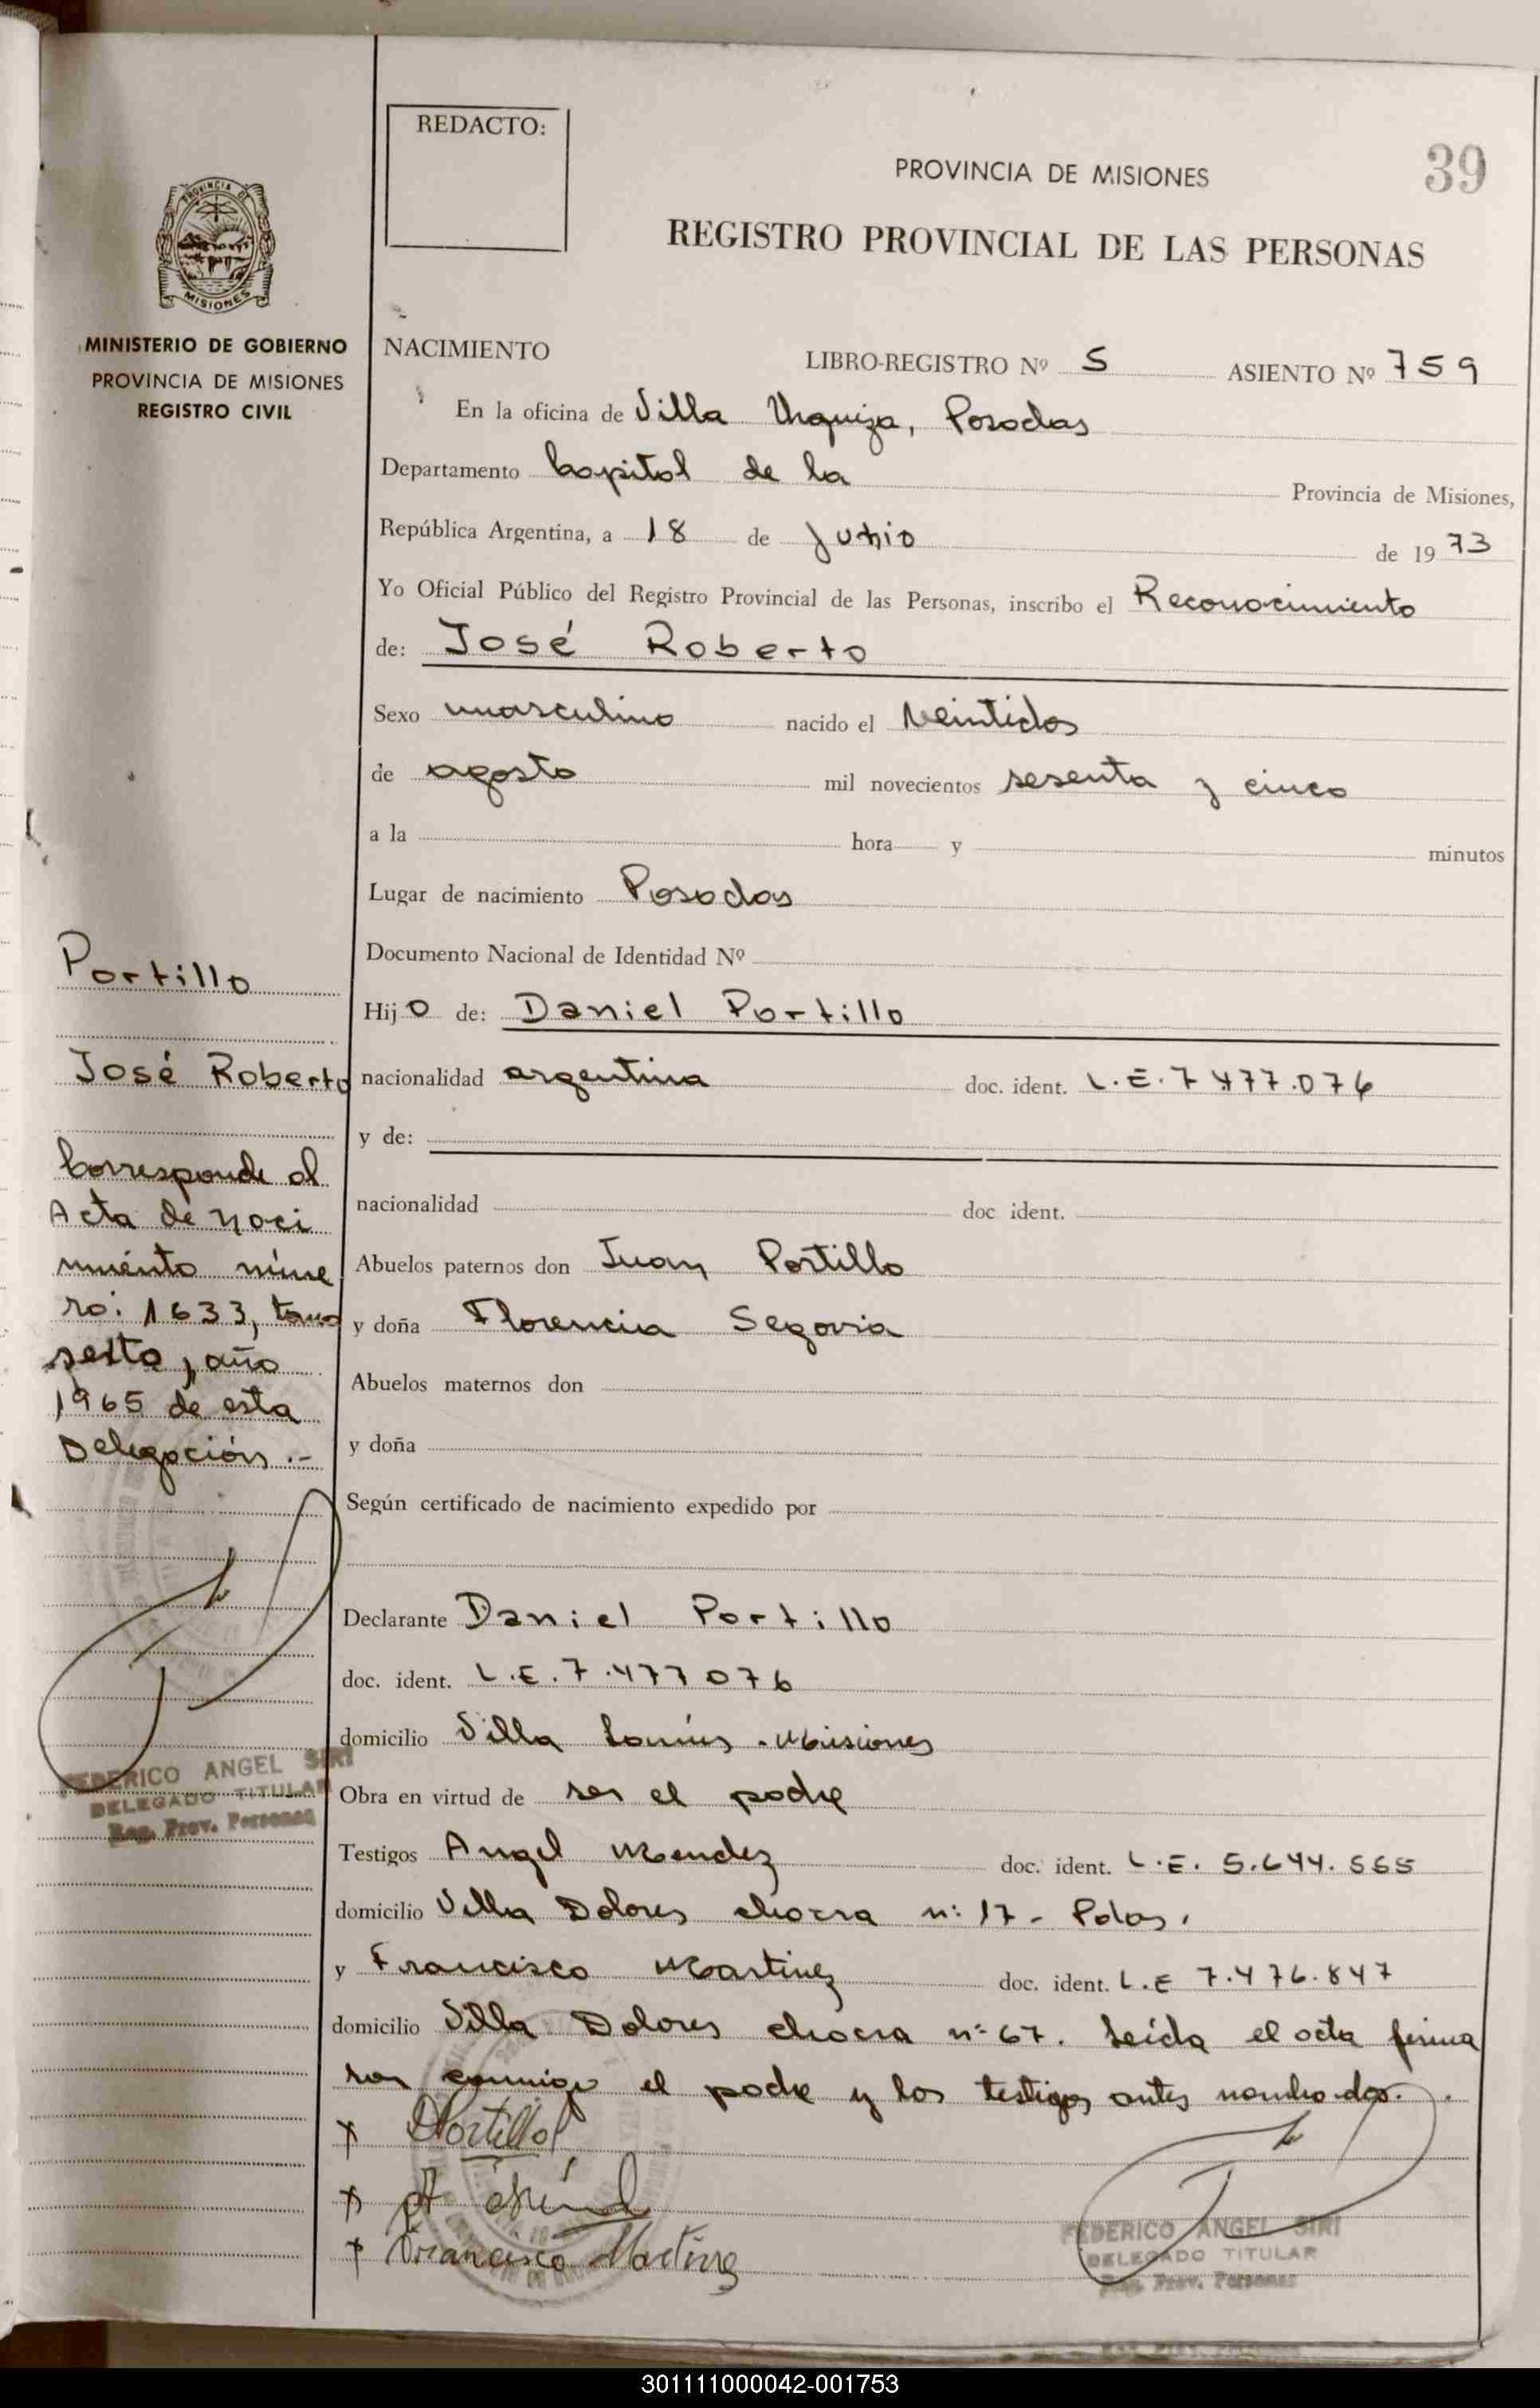 REDACTO:
PROVINCIA DE MISIONES
39
REGISTRO PROVINCIAL DE LAS PERSONAS
PROVINCIA DE
MISIONES
MINISTERIO DE GOBIERNO
PROVINCIA DE MISIONES
REGISTRO CIVIL
NACIMIENTO LIBRO-REGISTRO Nº 5 ASIENTO Nº 759
En la oficina de Villa Urquiza, Posadas
Departamento Capital de la Provincia de Misiones,
República Argentina, a 18 de Junio de 1973
Yo Oficial Público del Registro Provincial de las Personas, inscribo el Reconocimiento
de: José Roberto
Sexo masculino nacido el Veintidos
de agosto mil novecientos sesenta y cinco
a la hora y minutos
Lugar de nacimiento Posadas
Documento Nacional de Identidad Nº
Hijo de: Daniel Portillo
nacionalidad argentina doc. ident. L.E. 7.477.076
y de:
nacionalidad doc ident.
Abuelos paternos don Juan Portillo
y doña Florencia Segovia
Abuelos maternos don
y doña
Según certificado de nacimiento expedido por
Declarante Daniel Portillo
doc. ident. L.E. 7.477 076
domicilio Villa Lanús - Misiones
Obra en virtud de ser el padre
Testigos Angel Mendez doc. ident. L.E. 5.644.565
domicilio Villa Dolores chacra n: 17 - Pdas.
y Francisco Martinez doc. ident. L.E 7.476.847
domicilio Villa Dolores chacra nº 67. Leída el acta firma
ron conmigo el padre y los testigos antes nombrados.
x DPortillo
x A
x Francisco Martinez
FEDERICO ANGEL SIRI
DELEGADO TITULAR
Reg. Prov. Personas
Portillo
José Roberto
Corresponde al
Acta de naci
miento núme
ro: 1633, tomo
sexto, año
1965 de esta
Delegación.-
FEDERICO ANGEL SIRI
DELEGADO TITULAR
Reg. Prov. Personas
301111000042-001753